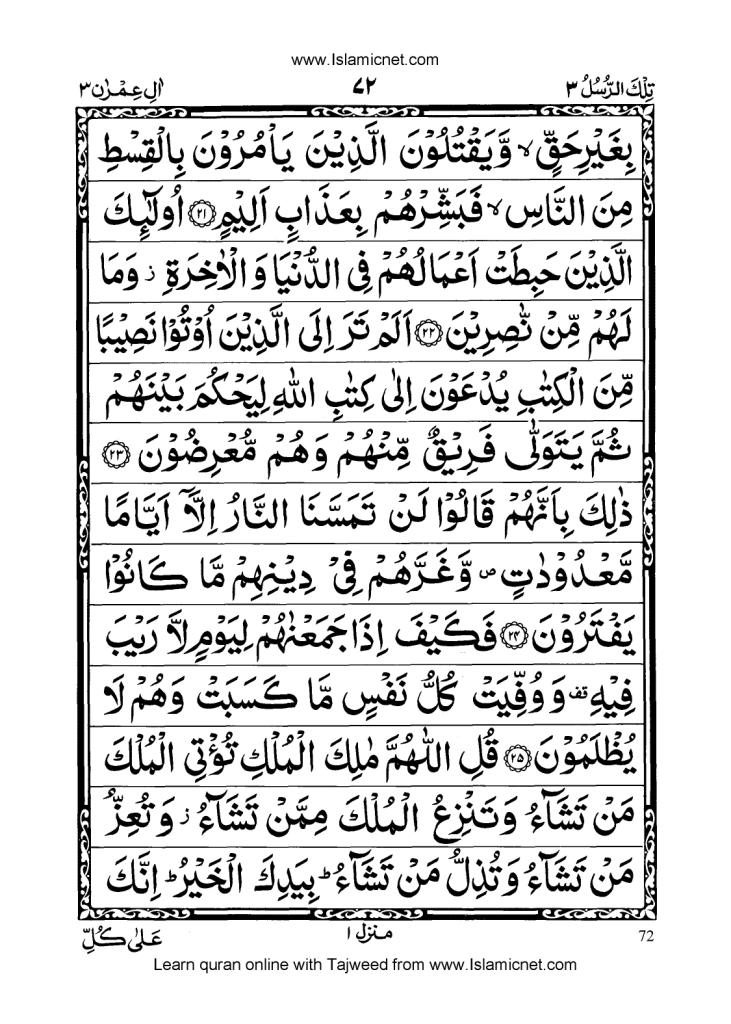 www.Islamicnet.com
تِلْكَ الرُّسُلُ ٣ ٧٢ اٰلِ عِمْرٰن ٣
بِغَيْرِ حَقٍّ ۙ وَّ يَقْتُلُوْنَ الَّذِيْنَ يَاْمُرُوْنَ بِالْقِسْطِ
مِنَ النَّاسِ ۙ فَبَشِّرْهُمْ بِعَذَابٍ اَلِيْمٍ ﴿۲۱﴾ اُولٰٓئِكَ
الَّذِيْنَ حَبِطَتْ اَعْمَالُهُمْ فِى الدُّنْيَا وَ الْاٰخِرَةِ ز وَمَا
لَهُمْ مِّنْ نّٰصِرِيْنَ ﴿۲۲﴾ اَلَمْ تَرَ اِلَى الَّذِيْنَ اُوْتُوْا نَصِيْبًا
مِّنَ الْكِتٰبِ يُدْعَوْنَ اِلٰى كِتٰبِ اللّٰهِ لِيَحْكُمَ بَيْنَهُمْ
ثُمَّ يَتَوَلّٰى فَرِيْقٌ مِّنْهُمْ وَهُمْ مُّعْرِضُوْنَ ﴿۲۳﴾
ذٰلِكَ بِاَنَّهُمْ قَالُوْا لَنْ تَمَسَّنَا النَّارُ اِلَّاۤ اَيَّامًا
مَّعْدُوْدٰتٍ ص وَّغَرَّهُمْ فِىْ دِيْنِهِمْ مَّا كَانُوْا
يَفْتَرُوْنَ ﴿۲۴﴾ فَكَيْفَ اِذَا جَمَعْنٰهُمْ لِيَوْمٍ لَّا رَيْبَ
فِيْهِ قف وَ وُفِّيَتْ كُلُّ نَفْسٍ مَّا كَسَبَتْ وَهُمْ لَا
يُظْلَمُوْنَ ﴿۲۵﴾ قُلِ اللّٰهُمَّ مٰلِكَ الْمُلْكِ تُؤْتِى الْمُلْكَ
مَنْ تَشَآءُ وَتَنْزِعُ الْمُلْكَ مِمَّنْ تَشَآءُ ز وَ تُعِزُّ
مَنْ تَشَآءُ وَ تُذِلُّ مَنْ تَشَآءُ ؕ بِيَدِكَ الْخَيْرُ ؕ اِنَّكَ
72 منزل ١ عَلٰى كُلِّ
Learn quran online with Tajweed from www.Islamicnet.com